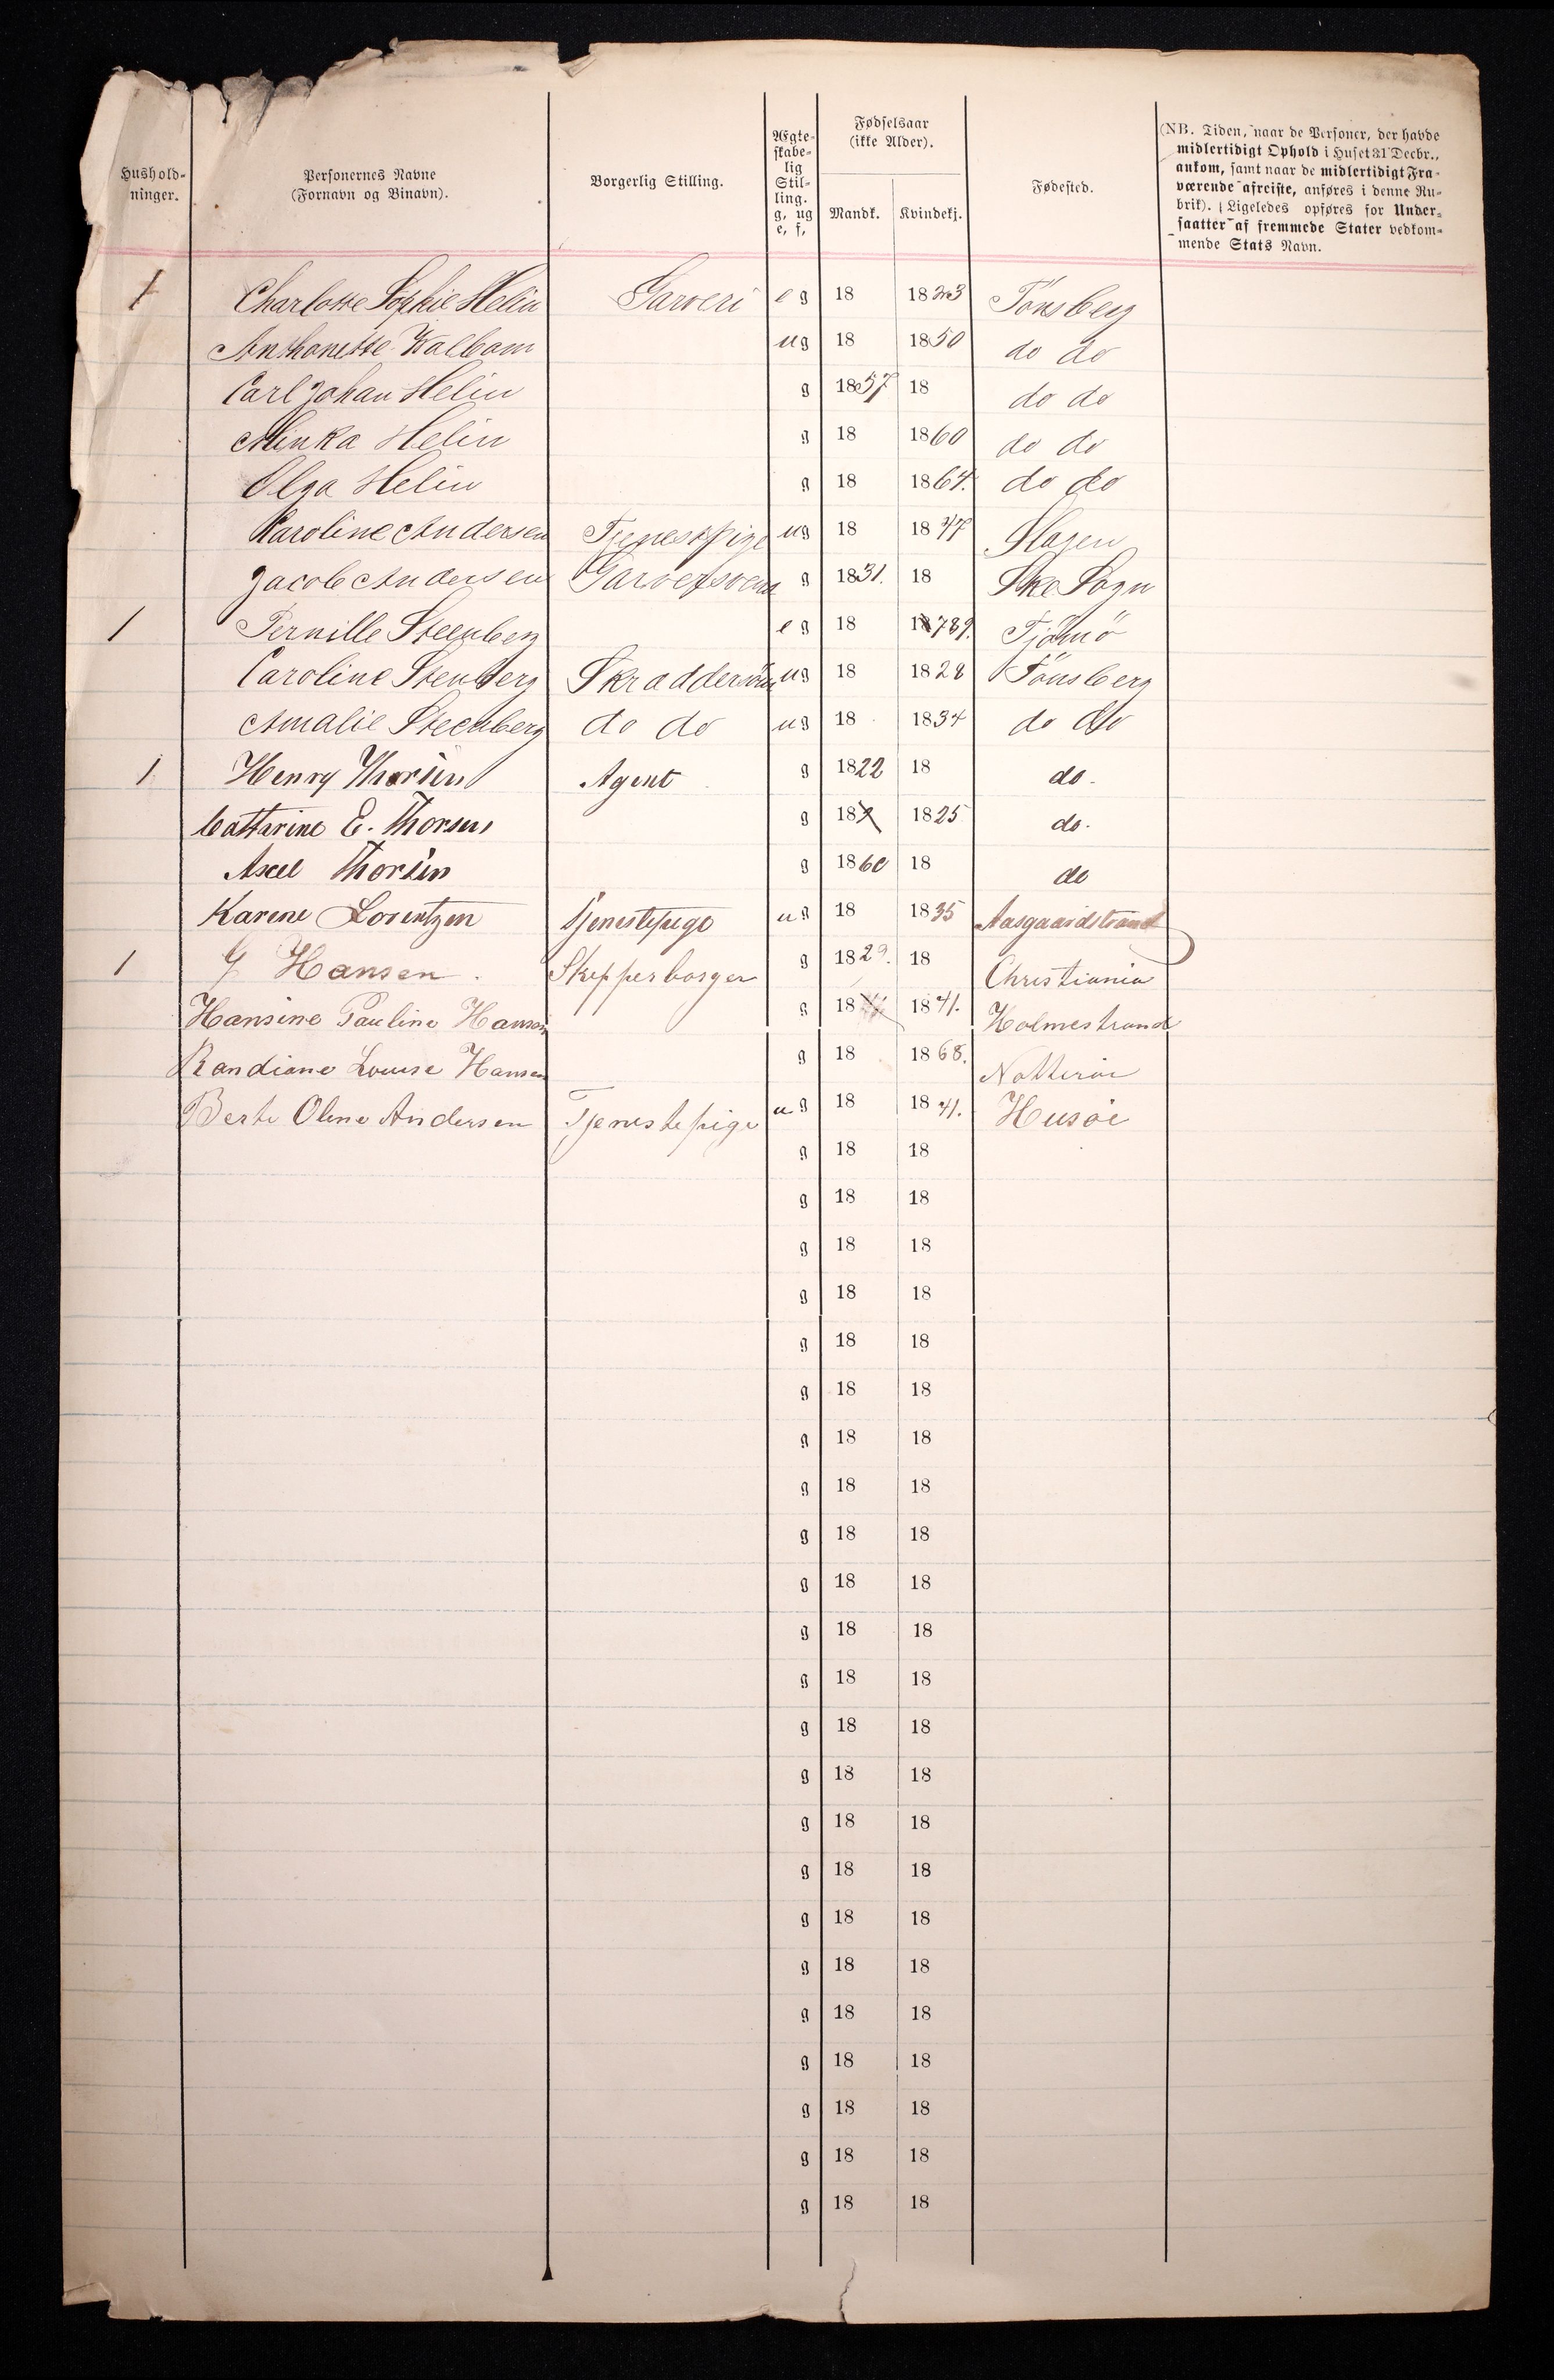 Hushold-
ninger.
Personernes Navne
(Fornavn og Binavn).
Borgerlig Stilling.
Ægte-
skabe-
lig
Stil-
ling.
g, ug
e, f,
Fødselsaar
(ikke Alder).
Mandk. Kvindekj.
Fødested.
(NB. Tiden, naar de Personer, der havde
midlertidigt Ophold i Huset 31 Decbr.,
ankom, samt naar de midlertidigt Fra-
værende afreiste, anføres i denne Ru-
brik). (Ligeledes opføres for Under-
saatter af fremmede Stater vedkom-
mende Stats Navn.
1 Charlotte Sophie Helin Garveri e g 18 1823 Tönsberg
Anthonette Walbom ug 18 1850 do do
Carl Johan Helin g 1857 18 do do
Minka Helin g 18 1860 do do
Olga Helin g 18 1864. do do
Karoline Andersen Tjenestpige ug 18 1847 Slagen
Jacob Andersen Garversvend g 1831. 18 Ske Sogn
1 Pernille Steenberg e g 18 1789. Tjömö
Caroline Stenberg ug 18 1828 Tönsberg
Amalie Steenberg do do ug 18 1834 do do
1 Henry Thorsen Agent g 1822 18 do.
Cathrine E. Thorsen g 18 1825 do.
Axel Thorsen g 1860 18 do
Karene Lorentzen Tjenestepige u g 18 1835 Aasgaardstrand
1 G Hansen. Skipperborger g 1829. 18 Christiania
Hansine Pauline Hansen g 18 1841. Holmestrand
Randiane Louise Hansen g 18 1868. Nøtterøe
Berte Oline Andersen Tjenestepige u g 18 1841. Husøe
g 18 18
g 18 18
g 18 18
g 18 18
g 18 18
g 18 18
g 18 18
g 18 18
g 18 18
g 18 18
g 18 18
g 18 18
g 18 18
g 18 18
g 18 18
g 18 18
g 18 18
g 18 18
g 18 18
g 18 18
g 18 18
g 18 18
g 18 18